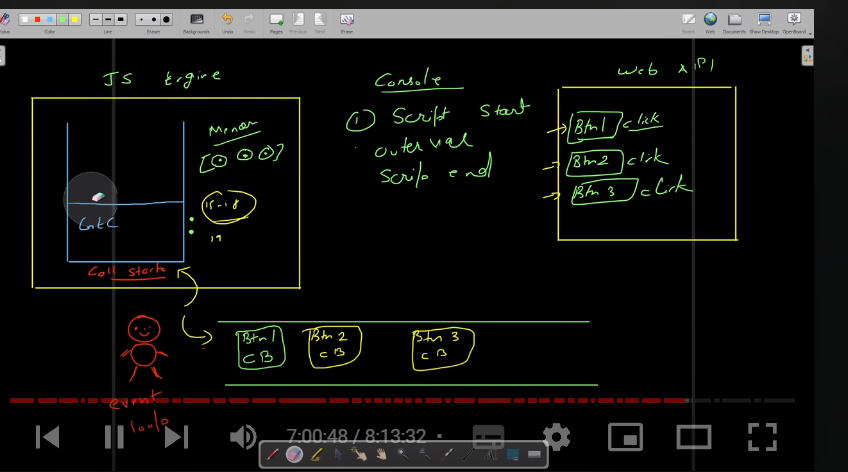 Color
Line
Eraser
Backgrounds
Undo
Redo
Pages
Previous
Next
Erase
Board
Web
Documents
Show Desktop
OpenBoard
JS Engine
Console
Web API
① Script Start
outerval
Script end
[⊙ ⊙ ⊙]
15-18
19
Cnt C
Call Stack
Btn1 click
Btn2 click
Btn 3 click
Btn 1
CB
Btn 2
CB
Btn 3
CB
event
loop
7:00:48 / 8:13:32